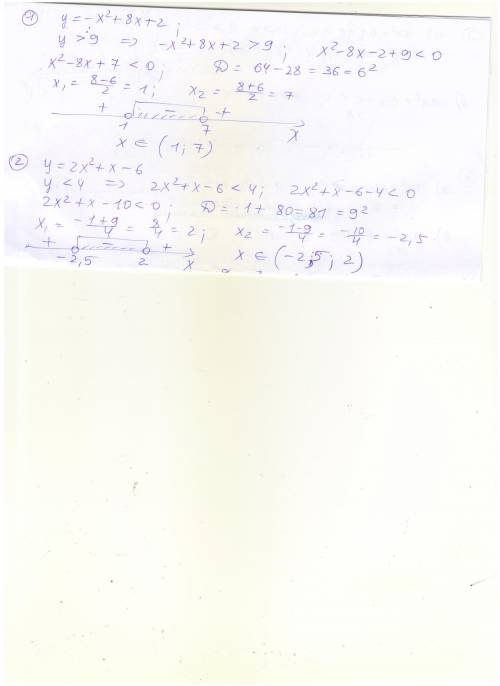 ① y = -x² + 8x + 2 ;
y > 9 ⇒ -x² + 8x + 2 > 9 ; x² - 8x - 2 + 9 < 0
x² - 8x + 7 < 0 ; D = 64 - 28 = 36 = 6²
x₁ = (8-6)/2 = 1 ; x₂ = (8+6)/2 = 7
+ - +
1 7 x
x ∈ (1; 7)
② y = 2x² + x - 6
y < 4 ⇒ 2x² + x - 6 < 4 ; 2x² + x - 6 - 4 < 0
2x² + x - 10 < 0 ; D = 1 + 80 = 81 = 9²
x₁ = (-1+9)/4 = 8/4 = 2 ; x₂ = (-1-9)/4 = -10/4 = -2,5
+ - +
-2,5 2 x
x ∈ (-2,5 ; 2)